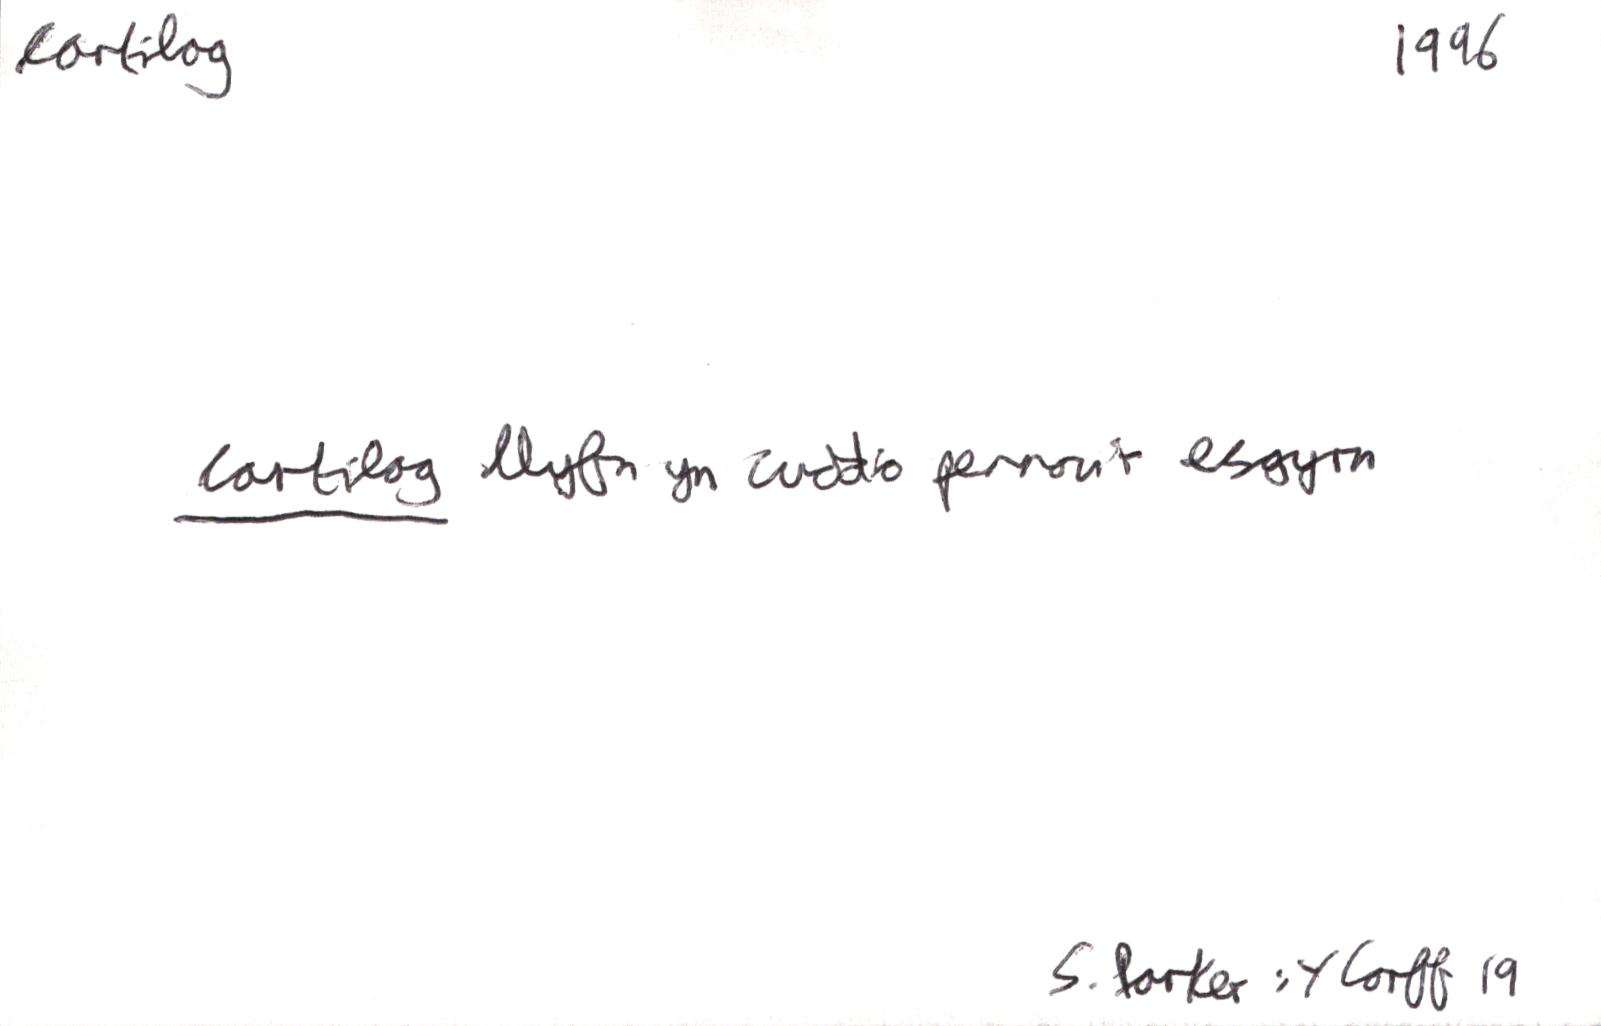 cartilag 1996
cartilag llyfn yn cuddio pennau'r esgyrn
S. Parker : Y Corff 19